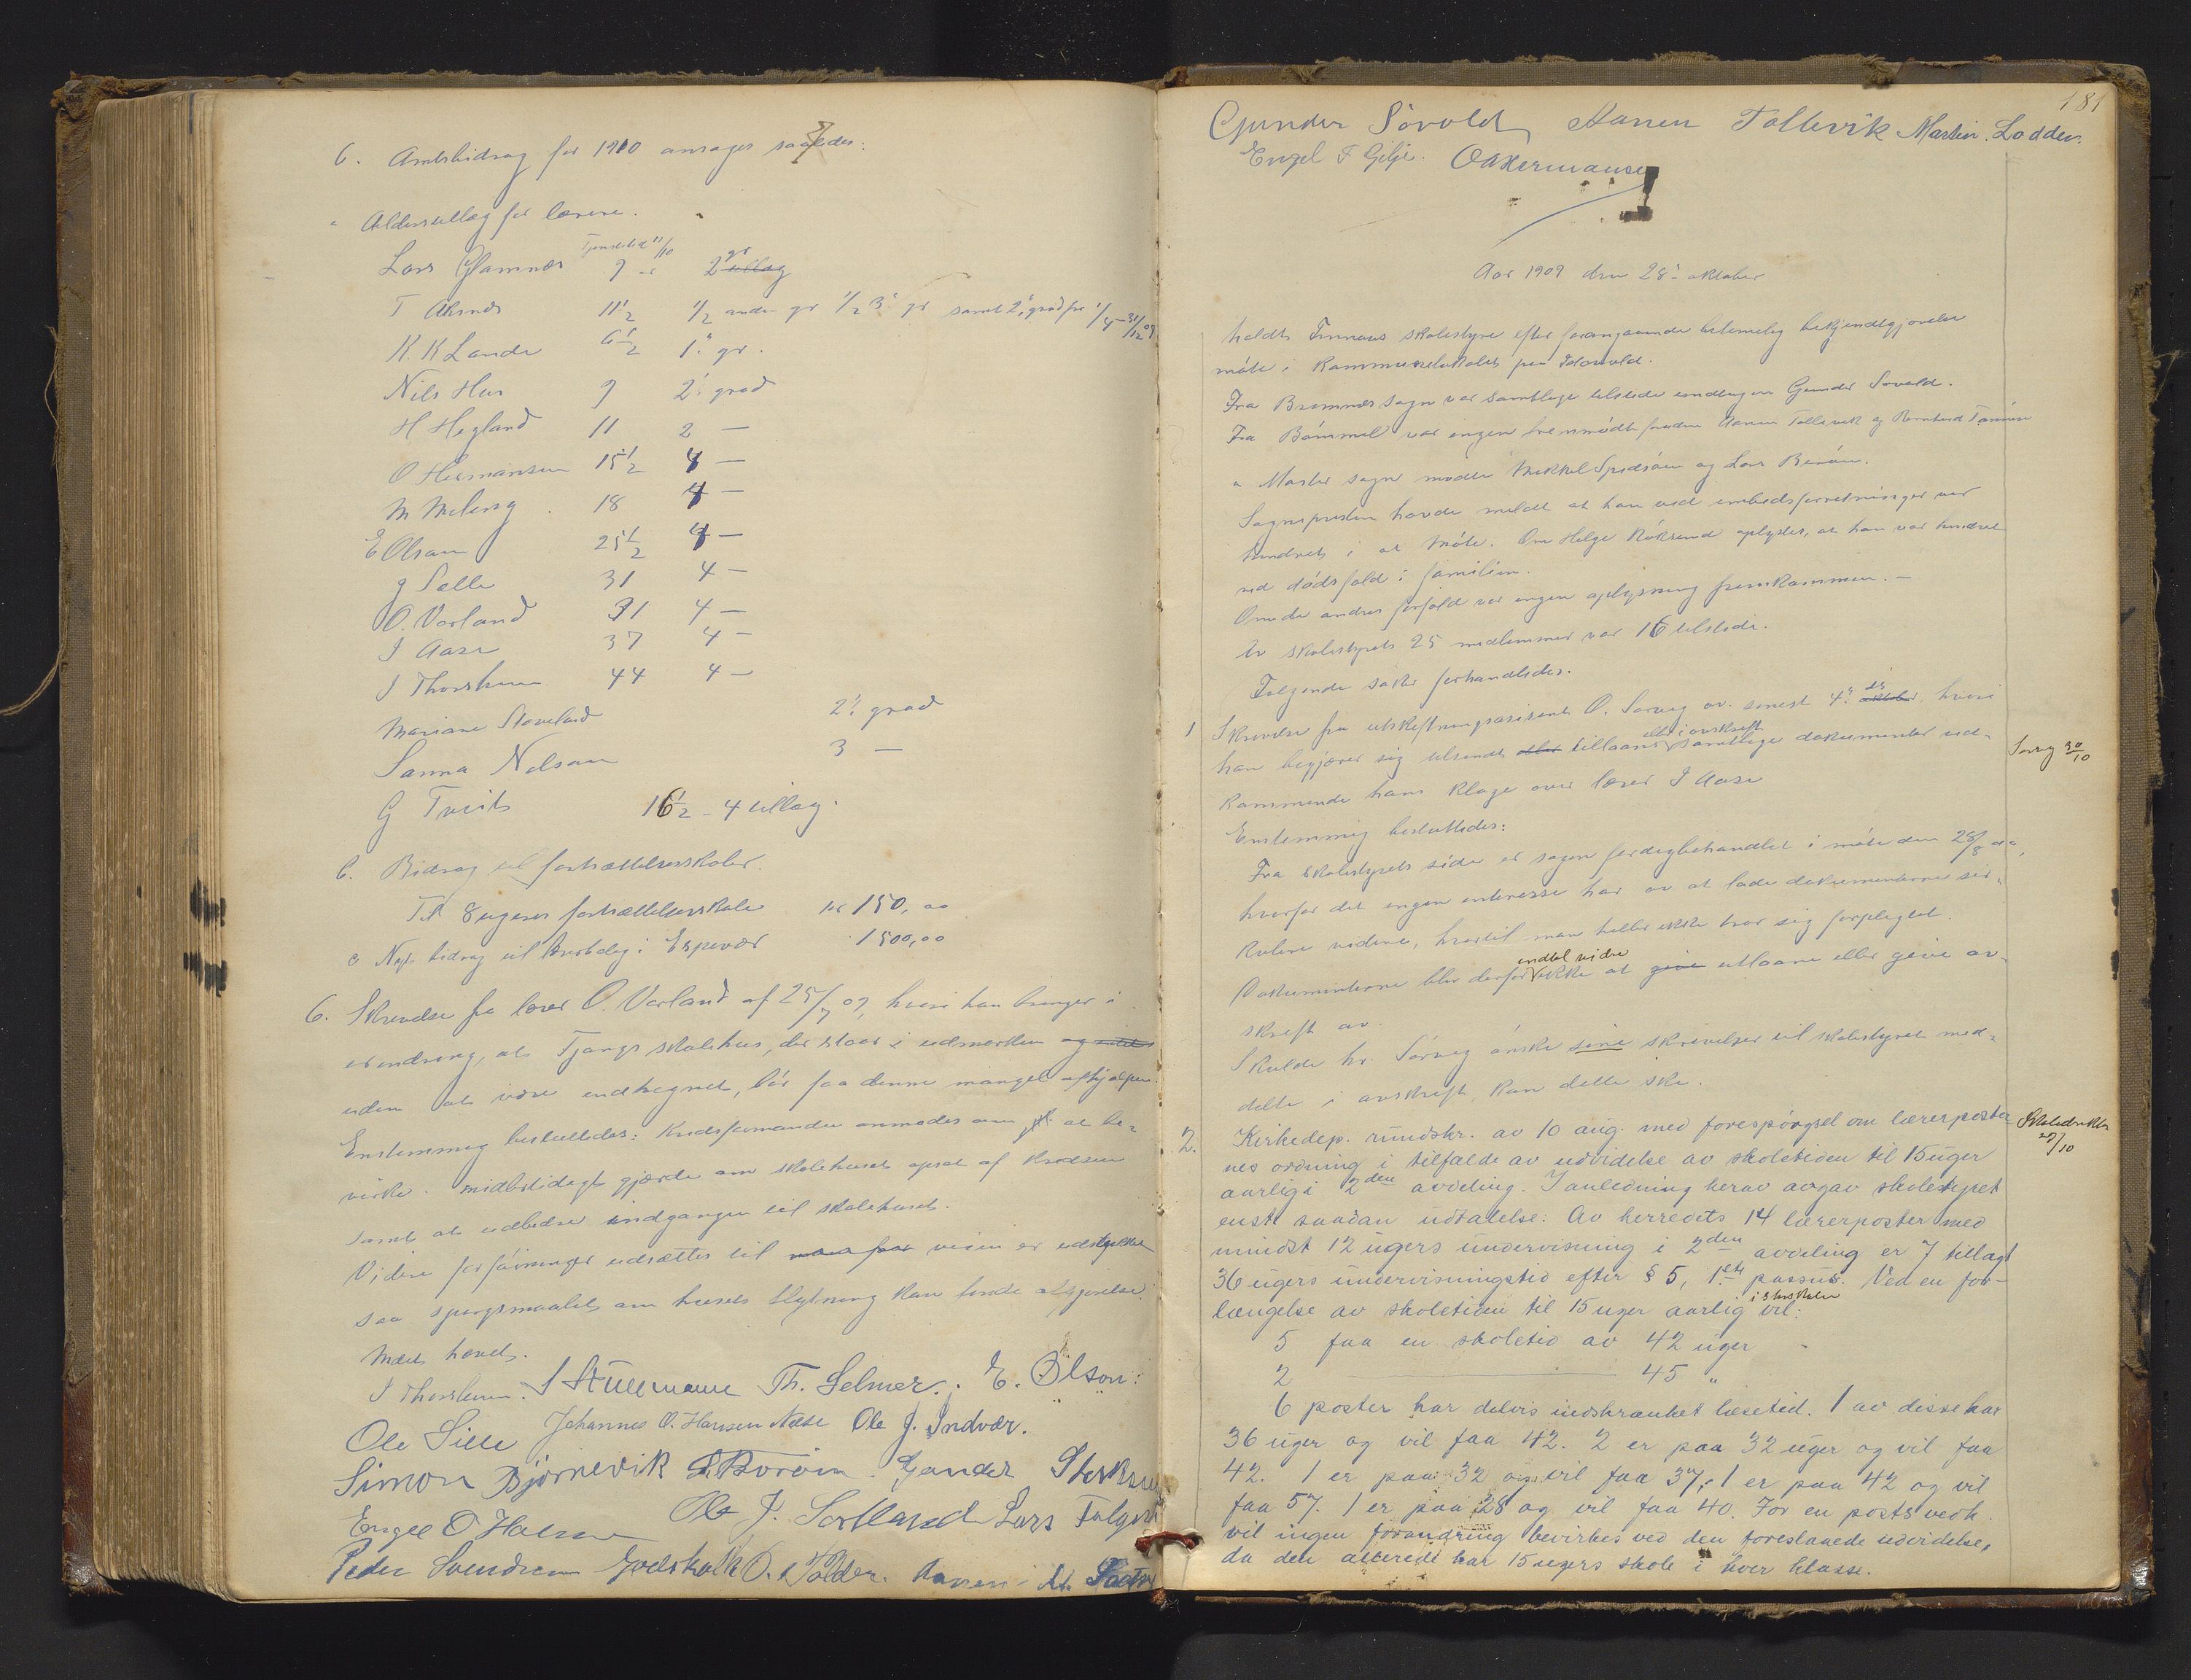 6. Amtsbidrag for 1910 ansøges saaledes:
" Alderstillæg for lærere.
Tjenestetid 1/1 10
Lars Glamnæs 9 – 2 gr tillæg
T Aksnes 11½ ½ anden gr ½ 3' gr samt 2' grad fra 1/4 – 31/12 09
K. K Lande 6½ 1' gr.
Nils Hus 9 2' grad
H Hegland 11 2 —
O Hermansen 15½ 4 —
M Meling 18 4 —
E Olsen 25½ 4 —
g Sælle 31 4 —
O. Vorland 31 4 —
I Aase 37 4 —
I Thorsheim 44 4 —
Mariane Stoveland 2' grad
Sanna Nelson 3 —
G Tveit 16½ – 4 tillæg.
b. Bidrag til fortsættelsesskoler.
Til 8 ugers fortsættelsesskole kr 150,00
c Nyt bidrag til lærerbolig i Espevær 1500,00
6. Skrivelse fra lærer O. Vorland af 25/7 09, hvori han bringer i
erindring, at Tjongs skolehus, der staar i udmarken og
uden at være indhegnet, bør faa denne mangel afhjulpen
Enstemmig besluttedes: Kredsformanden anmodes om at be-
virke midlertidigt gjærde om skolehuset opsat af kredsen
samt at udbedre indgangen til skolehuset.
Videre forføininger udsættes til veien er udstykket
saa spørgsmaalet om husets flytning kan finde afgjørelse.
Mødet hævet.
I Thorsheim. S Stüwemann Th. Selmer. E. Olson.
Ole Sille Johannes O. Hansen Næse Ole J. Indvær.
Simon Bjørnevik L. Borøen. Gunder
Engel O Halsen Ole J. Sortland Lars
Peder Svendsen Godskalk O. Folder. Aanen
181
Gunder Sovold Aanen Tollevik Martin Lodden.
Engel F Gilje. O Hermansen
Aar 1909 den 28' oktober
holdt Finnaas skolestyre efter forangaaende betimelig bekjendtgjørelse
møte i kommunelokalet paa
Fra Bremnes sogn var samtlige tilstede undtagen Gunder Sovold.
Fra Bømmel var ingen fremmødt foruden Aanen Tollevik og Bernhard
" Moster sogn mødte Mikkel Spidsøen og Lars Borøen.
Sognepresten havde meldt at han ved embedsforretninger var
hindret i at møte. Om Helge Røksund oplystes, at han var hindret
ved dødsfald i familien.
Om de andres forfald var ingen oplysning fremkommen. –
Av skolestyrets 25 medlemmer var 16 tilstede.
Følgende saker forhandledes.
1 Skrivelse fra utskiftningsassistent O. Sørvig av. senest 4' ds oktober hvori
han begjærer sig tilsendt eller tillaans eller i avskrift samtlige dokumenter ved-
kommende hans klage over lærer I Aase
Sørvig 30/10
Enstemmig besluttedes:
Fra skolestyrets side er sagen færdigbehandlet i møte den 28/8 09,
hvorfor det ingen interesse har av at lade dokumenterne sir-
kulere videre, hvortil man heller ikke tror sig forpligtet.
Dokumenterne blir derfor indtil videre ikke at give utlaane eller give av-
skrift av.
Skulde hr. Sørvig ønske sine skrivelser til skolestyret med-
delte i avskrift, kan dette ske.
2. Kirkedep. rundskr. av 10 aug. med forespørgsel om lærerposter-
Skoledirektør 29/10
nes ordning i tilfælde av udvidelse av skoletiden til 15 uger
aarlig i 2den avdeling. I anledning herav avgav skolestyret
enst. saadan udtalelse: Av herredets 14 lærerposter med
mindst 12 ugers undervisning i 2den avdeling er 7 tillagt
36 ugers undervisningstid efter § 5, 1ste passus. Ved en for-
længelse av skoletiden til 15 uger aarlig i storskolen vil:
5 faa en skoletid av 42 uger
2 —— 45 "
6 poster har delvis indskrænket læsetid. 1 av disse har
36 uger og vil faa 42. 2 er paa 32 uger og vil faa
42. 1 er paa 32 og vil faa 37, 1 er paa 42 og vil
faa 57. 1 er paa 28 og vil faa 40. For en posts vedk.
vil ingen forandring bevirkes ved den foreslaaede udvidelse,
da den allerede har 15 ugers skole i hver klasse.